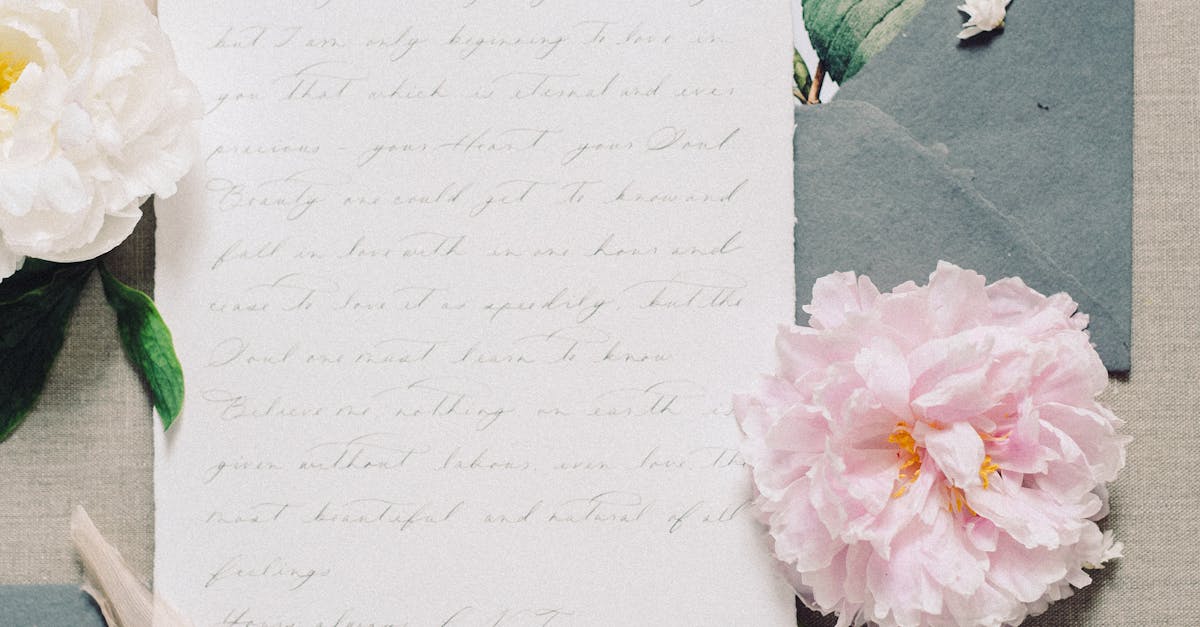 but I am only beginning to love in
you that which is eternal and ever
precious - your Heart your Soul
Beauty one could get to know and
fall in love with in one hour and
cease to love it as speedily, but the
Soul one must learn to know
Believe me, nothing on earth is
given without labour, even love, the
most beautiful and natural of all
feelings